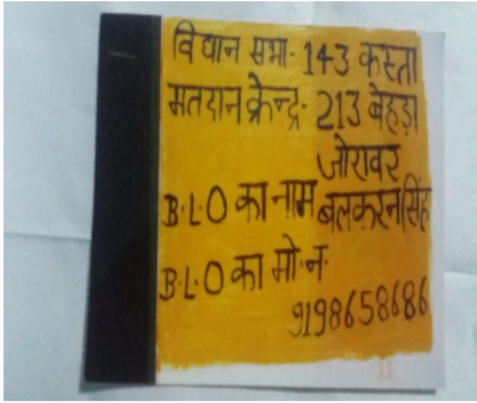 विधान सभा· 143 कस्ता
मतदान क्रेन्द्र· 213 बेहड़ा
जोरावर
B·L·O का नाम बलकरन सिंह
B·L·O का मो·न·
9198658686